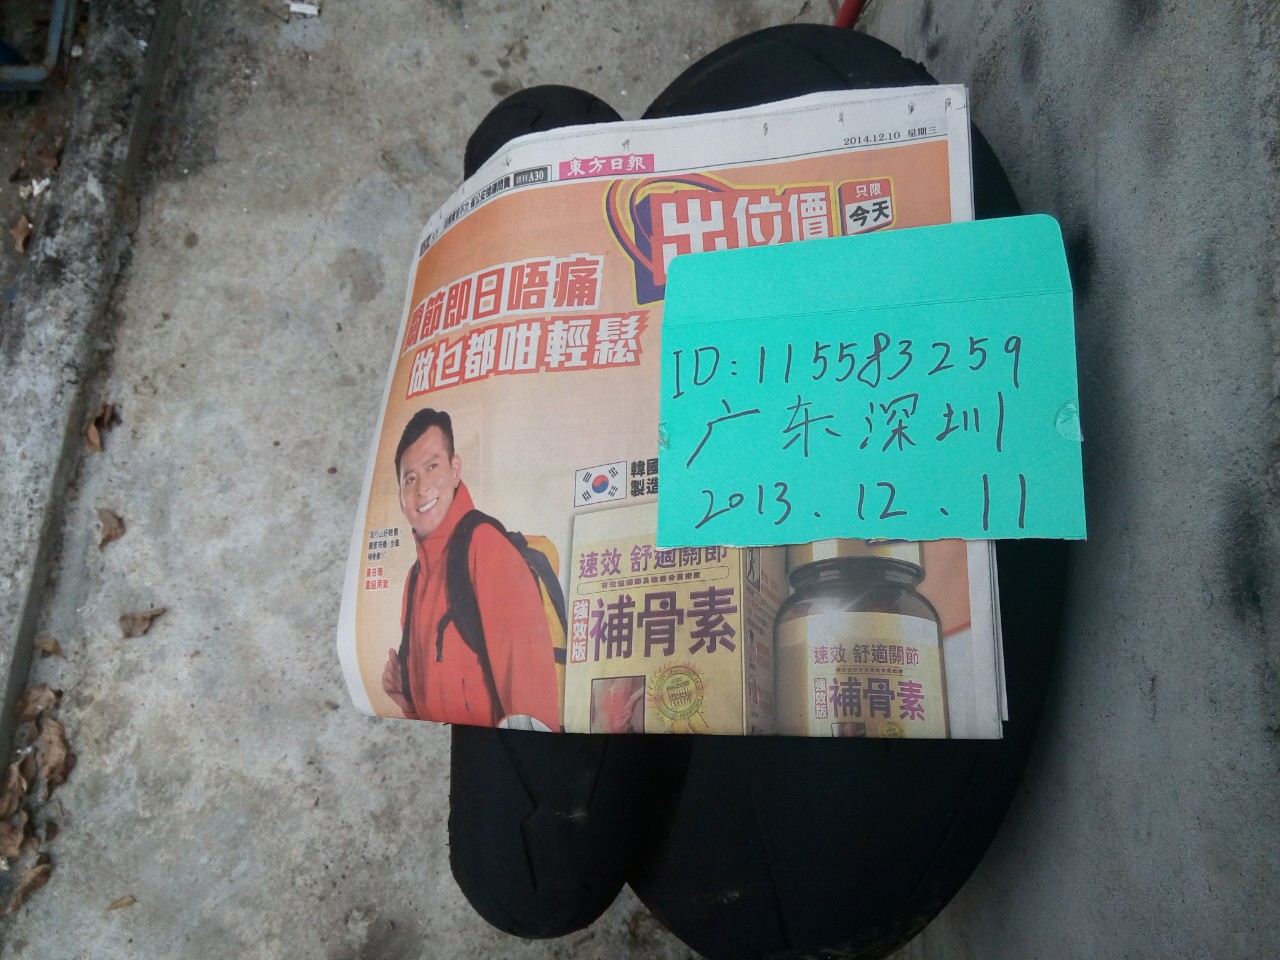 東方日報
A30
2014.12.10 星期三
出位價
只限
今天
關節即日唔痛
做乜都咁輕鬆
ID:115583259
广东深圳
2013.12.11
韓國
製造
速效 舒適關節
強效版
補骨素
速效 舒適關節
強效版
補骨素